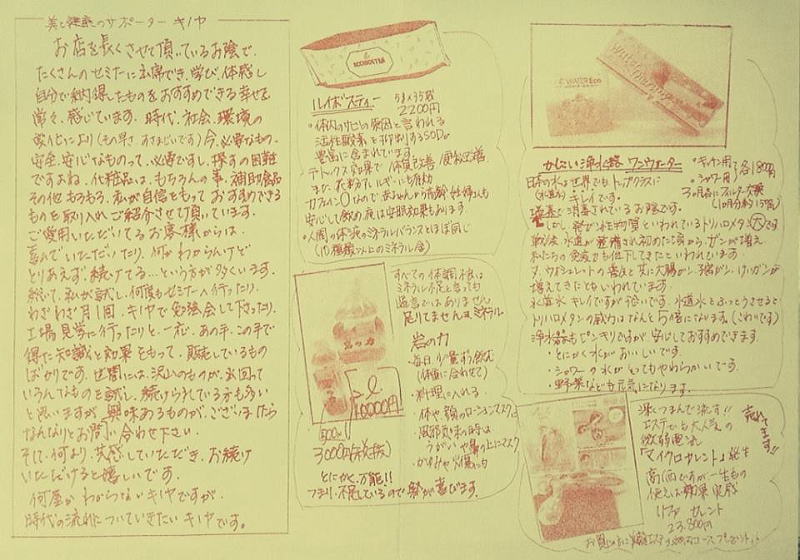 美と健康のサポーター キノヤ
お店を長くさせて頂いているお陰で、
たくさんのセミナーに出席でき、学び、体感し
自分で納得したものをおすすめできる幸せを
常々、感じています。時代、社会、環境の
変化により(もの早さ、すさまじいです)今、必要なもの、
安全、安心なものって、必需ですし、探すの困難
ですよね。化粧品は、もちろんの事、補助食品
その他もろもろ、私が自信をもっておすすめできる
ものを取り入れ、ご紹介させて頂いています。
ご愛用いただいてるお客様からは、
喜んでいただいたり、何かわからんけど
とりあえず、続けてる…という方が多くいます。
続いて、私が試し、何度もセミナーへ行ったり、
わざわざ月1回、キノヤで勉強会して下さったり、
工場見学に行ったりと、一応、あの手、この手で
得た知識と効果をもって、販売しているもの
ばかりです。世間には、沢山のものが出回って
いろんなものを試し、続けられている方も多い
と思いますが、興味あるものが、ございましたら
なんなりとお問い合わせ下さい。
そして、何より、共感していただき、お続け
いただけると嬉しいです。
何屋かわからないキノヤですが、
時代の流れについていきたいキノヤです。
ROOIBOS TEA
ルイボスティー
2200円
・体内のサビの原因と言われる
活性酸素を抑制するSODが
豊富に含まれています。
・デトックス効果で 体質改善 便秘改善
また、花粉、アレルギーにも有効
カフェイン0なので 赤ちゃんから高齢、妊婦さんも
安心して飲め、夜は安眠効果もあります。
・人間の体液のミネラルバランスとほぼ同じ
すべての体調不良は
ミネラル不足と言っても
過言ではありません
足りてませんョ ミネラル
岩の力
・毎日少量ずつ飲む
(体調に合わせて)
・料理に入れる
・体や顔のローションマスク
・風邪気味の時は
うがいや鼻の上にマスク
・かゆみや火傷にも
10000円
500cc
3000円(税抜)
とにかく万能!!
つまり、不足しているので 体が喜びます。
WATER Eco
かしこい浄水器 ワンウォーター
・キッチン用
・シャワー用
3ヶ月毎にフィルター交換
日本の水は世界でもトップクラスに
(水道水) キレイです。
塩素で消毒されているお陰です。
しかし、発がん性物質といわれているトリハロメタン大です
私たちの免疫でも低下してきたといわれています
又、ウォシュレットの普及と共に大腸がん、子宮がん、
増えてきたともいわれています
水道水 キレイですが怖いです。水道水をふっとうさせると
トリハロメタンの威力はなんと5倍になります。(こわいです)
浄水器もピンキリですが安心しておすすめできます。
・とにかく水がおいしいです。
・シャワーの水がとてもやわらかいです。
・野菜なども元気になります。
売れてます!!
深くつまんで流す!!
エステでも大人気の
微弱電流
「マイクロカレント」発生
高価ですが一生もの
使えば効果実感
リファ カレント
23,800円